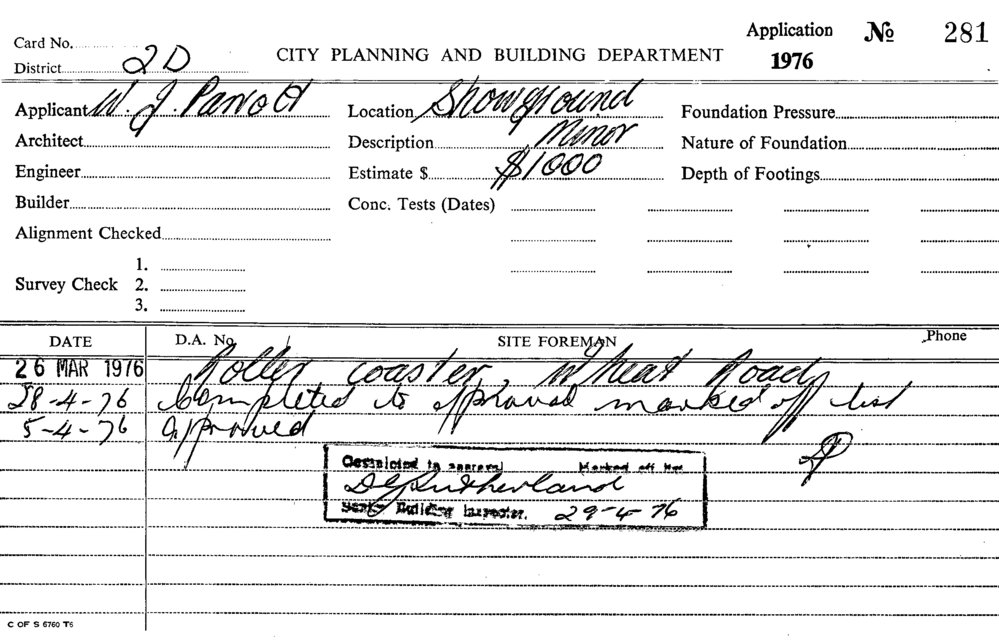 Card No.
District 2D
CITY PLANNING AND BUILDING DEPARTMENT
Application № 281
1976
Applicant W. J. Parrott Location Showground Foundation Pressure
Architect Description Minor Nature of Foundation
Engineer Estimate $ $1000 Depth of Footings
Builder Conc. Tests (Dates)
Alignment Checked
Survey Check 1.
2.
3.
DATE D.A. No. SITE FOREMAN Phone
26 MAR 1976 Roller coaster, Wheat Road,
28-4-76 Completed to approval marked off list
5-4-76 approved
Completed to approval Marked off list
D G Sutherland
Senior Building Inspector. 29-4-76
C OF S 6760 T6